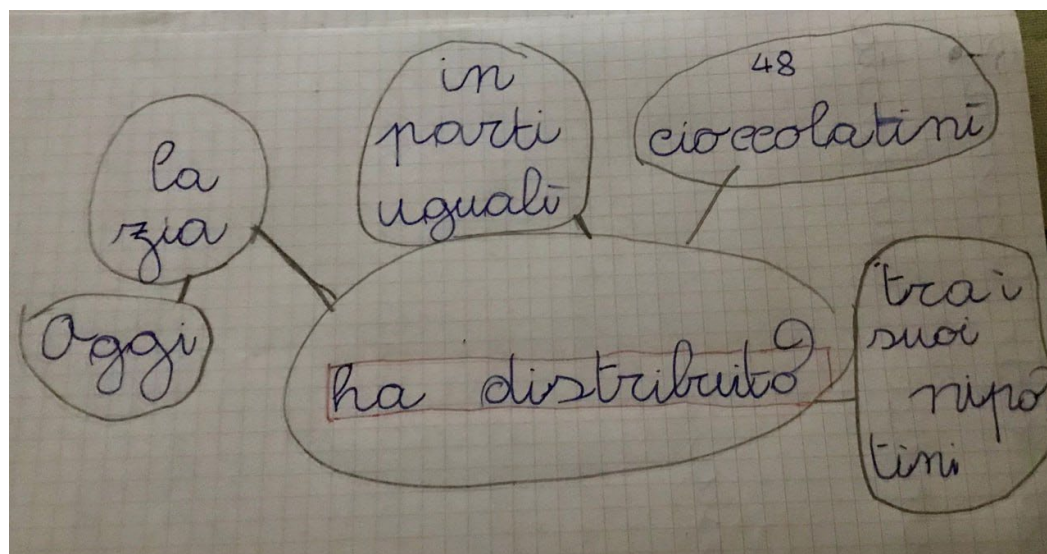 la
zia
Oggi
in
parti
uguali
48
cioccolatini
ha distribuito
tra i
suoi
nipo
tini